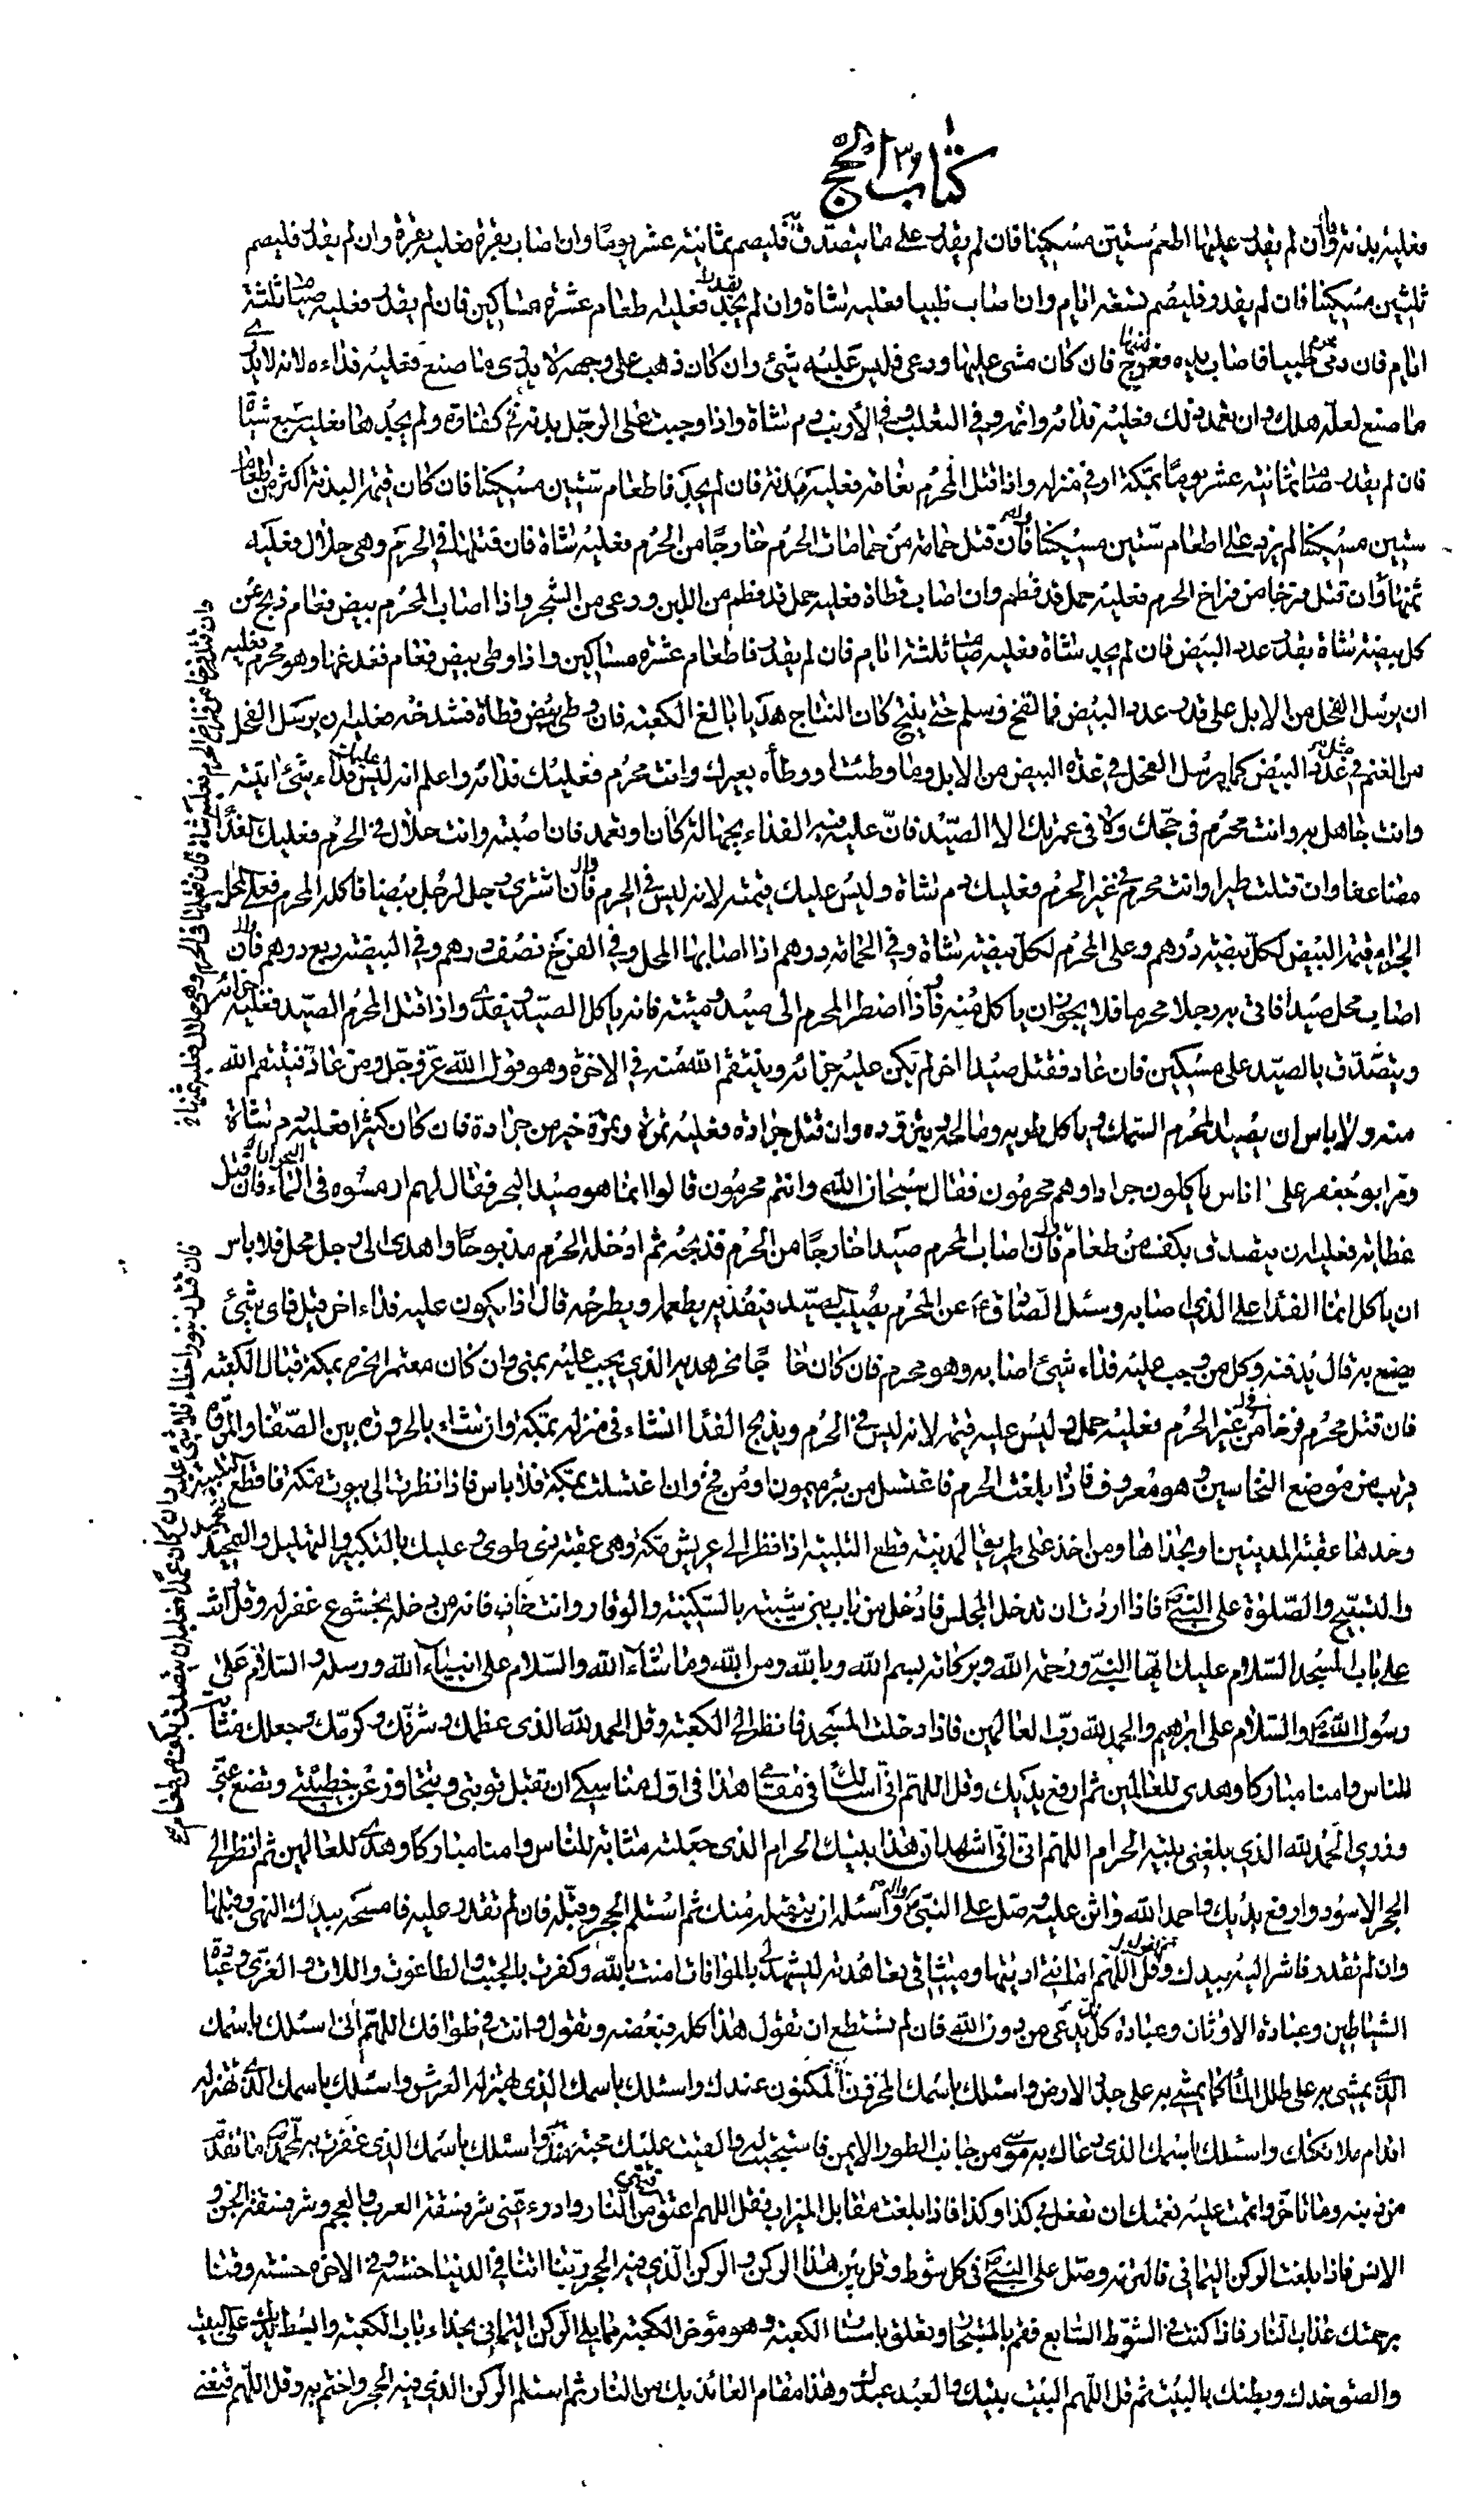 كتاب الحج
٣٦
فعليه بدنة وان لم يقدر عليها اطعم ستين مسكينا فان لم يقدر على ما يتصدق فليصم ثمانية عشر يوما وان اصاب بقرة فعليه بقرة وان لم يقدر فليصم
ثلثين مسكينا فان لم يقدر فليصم تسعة ايام وان اصاب ظبيا فعليه شاة وان لم يجد فعليه طعام عشرة مساكين فان لم يقدر فعليه صيام ثلثة
ايام فان رمى محرم ظبيا فاصاب يده فعرج فان كان مشى عليها ورعى فليس عليه شئ وان كان ذهب على وجهه لا يدرى ما صنع فعليه فداءه لانه لا يدرى
ما صنع لعله هلك وان تعمد ذلك فعليه فدائه واثمه وفى الثعلب وفى الارنب دم شاة واذا وجبت على الرجل بدنة فى كفارة ولم يجدها فعليه سبع شياة
فان لم يقدر صام ثمانية عشر يوما بمكة او فى منزله واذا قتل المحرم نعامة فعليه بدنة فان لم يجد فاطعام ستين مسكينا فان كان قيمة البدنة اكثر من اطعام
ستين مسكينا لم يزد على اطعام ستين مسكينا فان قتل حمامة من حمامات الحرم خارجا من الحرم فعليه شاة فان قتلها فى الحرم وهى حلال فعليه
ثمنها وان قتل فرخا من فراخ الحرم فعليه حمل قد فطم وان اصاب قطاة فعليه حمل قد فطم من اللبن ورعى من الشجر واذا اصاب المحرم بيض نعام ذبح عن
كل بيضة شاة بقدر عدد البيض فان لم يجد شاة فعليه صيام ثلثة ايام فان لم يقدر فاطعام عشرة مساكين واذا وطى بيض نعام ففدغها وهو محرم فعليه
ان يرسل الفحل من الابل على قدر عدد البيض فما لقح وسلم حتى ينتج كان النتاج هديا بالغ الكعبة فان وطى بيض قطاة فشدخه فعليه ان يرسل الفحل
من الغنم فى عدد البيض كما يرسل الفحل فى عدة البيض من الابل وما وطئت او وطأه بعيرك وانت محرم فعليك فدائه واعلم انه ليس عليك فداء شئ اتيته
وانت جاهل به وانت محرم فى حجك ولا فى عمرتك الا الصيد فان عليه فيه الفداء بجهالة كان او بعمد فان اصبته وانت حلال فى الحرم فعليك الفداء
مضاعفا وان قتلت طيرا وانت محرم فى غير الحرم فعليك دم شاة وليس عليك قيمته لانه ليس فى الحرم فان اشترى رجل لرجل بيضا فاكله المحرم فعلى المحل
الجزاء قيمة البيض لكل بيضة درهم وعلى المحرم لكل بيضة شاة وفى الحمامة درهم اذا اصابها المحل وفى الفرخ نصف درهم وفى البيضة ربع درهم فان
اصاب محل صيدا فاتى به رجلا محرما فلا يجوز ان ياكل منه فاذا اضطر المحرم الى صيد وميتة فانه ياكل الصيد ويفدى واذا قتل المحرم الصيد فعليه جزائه
ويتصدق بالصيد على مسكين فان عاد فقتل صيدا اخر لم يكن عليه جزائه وينتقم الله منه فى الاخرة وهو قول الله عز وجل ومن عاد فينتقم الله
منه ولا باس ان يصيد المحرم السمك وياكل طريه ومالحه ويتزوده وان قتل جرادة فعليه تمرة وتمرة خير من جرادة فان كان كثيرا فعليه دم شاة
ومر ابو جعفر على اناس ياكلون جرادا وهم محرمون فقال سبحان الله وانتم محرمون قالوا انما هو صيد البحر فقال لهم ارمسوه فى الماء فان قتل
عظاية فعليه ان يتصدق بكف من طعام فان اصاب المحرم صيدا خارجا من الحرم فذبحه ثم ادخله الحرم مذبوحا واهدى الى رجل محل فلا باس
ان ياكل انما الفداء على الذى اصابه وسئل الصادق ع عن المحرم يصيب الصيد فيفديه يطعمه او يطرحه قال اذا يكون عليه فداء اخر قيل فاى شئ
يصنع به قال يدفنه وكل من وجب عليه فداء شئ اصابه وهو محرم فان كان حاجا نحر هديه الذى يجب عليه بمنى وان كان معتمرا نحره بمكة قبال الكعبة
فان قتل محرم فرخا من غير الحرم فعليه حمل وليس عليه قيمته لانه ليس فى الحرم ويذبح الفداء انشاء فى منزله بمكة وان شاء بالحزورة بين الصفا والمروة
قريب من موضع النخاسين وهو معروف فاذا بلغت الحرم فاغتسل من بئر ميمون او من فخ وان اغتسلت بمكة فلا باس فاذا نظرت الى بيوت مكة فاقطع التلبية
وحدها عقبة المدنيين او بحذاها ومن اخذ على طريق المدينة قطع التلبية اذا نظر الى عريش مكة وهى عقبة ذى طوى وعليك بالتكبير والتهليل والتمجيد
والتسبيح والصلوة على النبى ص فاذا اردت ان تدخل المجلس فادخل من باب بنى شيبة بالسكينة والوقار وانت حاف فانه من دخله بخشوع غفر له وقل وانت
على باب المسجد السلام عليك ايها النبى ورحمة الله وبركاته بسم الله وبالله ومن الله وما شاء الله والسلام على انبياء الله ورسله والسلام على
رسول الله ص والسلام على ابراهيم والحمد لله رب العالمين فاذا دخلت المسجد فانظر الى الكعبة وقل الحمد لله الذى عظمك وشرفك وكرمك وجعلك مثابة
للناس وامنا مباركا وهدى للعالمين ثم ارفع يديك وقل اللهم انى اسئلك فى مقامى هذا فى اول مناسكى ان تقبل توبتى وتتجاوز عن خطيئتى وتضع عنى
وزرى الحمد لله الذى بلغنى بيته الحرام اللهم انى اشهد ان هذا بيتك الحرام الذى جعلته مثابة للناس وامنا مباركا وهدى للعالمين ثم انظر الى
الحجر الاسود وارفع يديك واحمد الله واثن عليه وصل على النبى واله واسئله ان يتقبله منك ثم استلم الحجر وقبله فان لم تقدر عليه فامسحه بيدك اليمنى وقبلها
وان لم تقدر فاشر اليه بيدك وقل اللهم امانتى اديتها وميثاقى تعاهدته لتشهد لى بالموافاة امنت بالله وكفرت بالجبت والطاغوت واللات والعزى وعبادة
الشياطين وعبادة الاوثان وعبادة كل ند يدعى من دون الله فان لم تستطع ان تقول هذا كله فبعضه وتقول وانت فى طوافك اللهم انى اسئلك باسمك
الذى يمشى به على طلل الماء كما يمشى به على جدد الارض واسئلك باسمك المخزون المكنون عندك واسئلك باسمك الذى يهتز له العرش واسئلك باسمك الذى تهتز له
اقدام ملائكتك واسئلك باسمك الذى دعاك به موسى من جانب الطور الايمن فاستجبت له والقيت عليك محبة منك واسئلك باسمك الذى غفرت به لمحمد ص ما تقدم
من ذنبه وما تاخر واتممت عليه نعمتك ان تفعل بى كذا وكذا فاذا بلغت مقابل الميزاب فقل اللهم اعتق رقبتى من النار وادرء عنى شر فسقة العرب والعجم وشر فسقة الجن و
الانس فاذا بلغت الركن اليمانى فالتزمه وصل على النبى ص فى كل شوط وقل بين هذا الركن والركن الذى فيه الحجر ربنا اتنا فى الدنيا حسنة وفى الاخرة حسنة وقنا
برحمتك عذاب النار فاذا كنت فى الشوط السابع فقم بالمستجار وتعلق باستار الكعبة وهو مؤخر الكعبة مما يلى الركن اليمانى بحذاء باب الكعبة وابسط يديك على البيت
والصق خدك وبطنك بالبيت ثم قل اللهم البيت بيتك والعبد عبدك وهذا مقام العائذ بك من النار ثم استلم الركن الذى فيه الحجر واختم به وقل اللهم قنعنى
وان قتل فرخا من فراخ الحرم فعليه شاة فان قتلها فى الحرم وهى حلال فعليه ثمنها
فان قتل زنبورا خطاء فلا شئ عليه وان كان عمدا فعليه ان يتصدق بكف من طعام